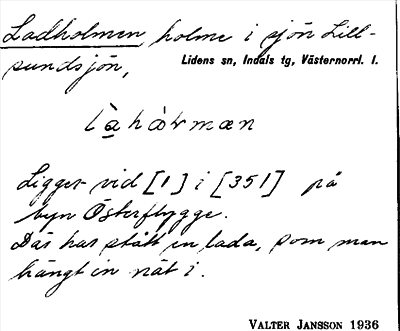 Ladholmen, holme i sjön Lill-
sundsjön,
Lidens sn, Indals tg, Västernorrl. l.
Ligger vid [1] i [351] på
byn Österflygge.
Där har stått en lada, som man
hängt in nät i.
VALTER JANSSON 1936